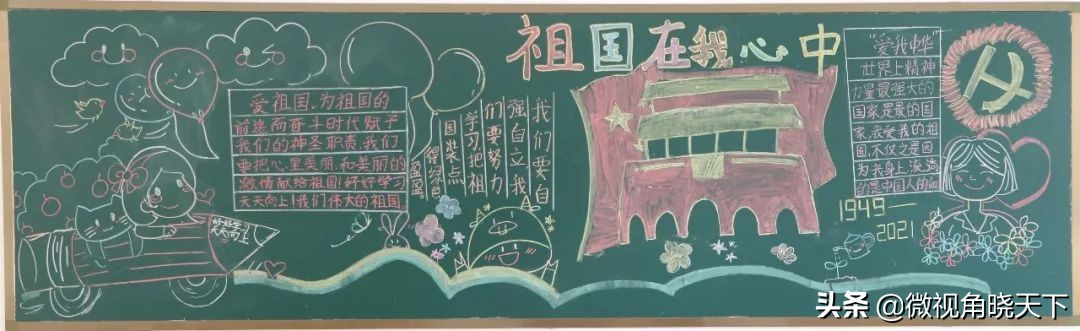 祖国在我心中
爱祖国,为祖国的
前途而奋斗时代赋予
我们的神圣职责,我们
要把心里美丽,和美丽的
激情献给祖国!好好学习
天天向上!我们伟大的祖国
好好学习
天天向上
我们要自
强自立我
们要努力
学习把祖
国装点
得绿色
盈盈
"爱我中华"
世界上精神
力量最强大的
国家是最的国
家,我爱我的祖
国,不仅之是因
为我身上流淌
的是中国人的血
1949—
2021
头条 @微视角晓天下